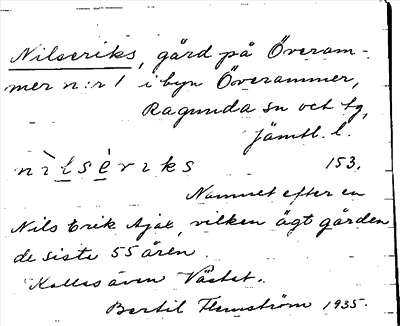 Nilseriks, gård på Överam-
mer n:r 1 i byn Överammer,
Ragunda sn och tg,
Jämtl. l.
nìlsèrıks 153.
Namnet efter en
Nils Erik Ajax, vilken ägt gården
de sista 55 åren.
Kallas även Västat.
Bertil Flemström 1935.